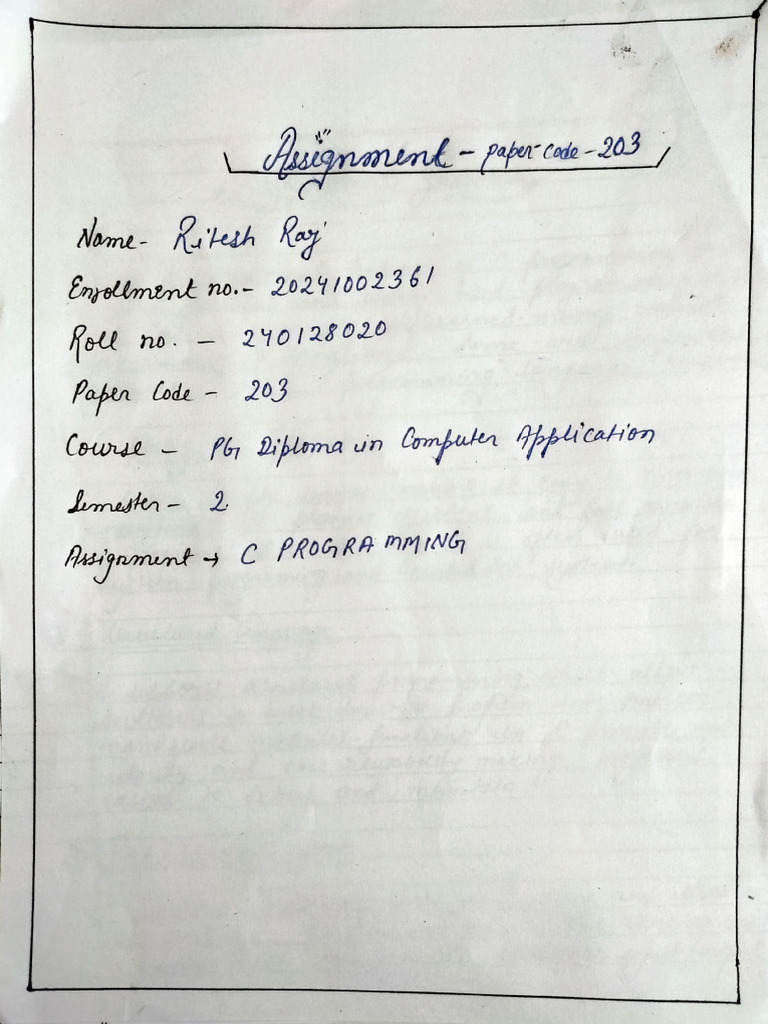 Assignment - paper-code-203
Name- Ritesh Raj
Enrollment no.- 20241002361
Roll no. - 240128020
Paper Code - 203
Course - PG Diploma in Computer Application
Semester- 2
Assignment → C PROGRAMMING